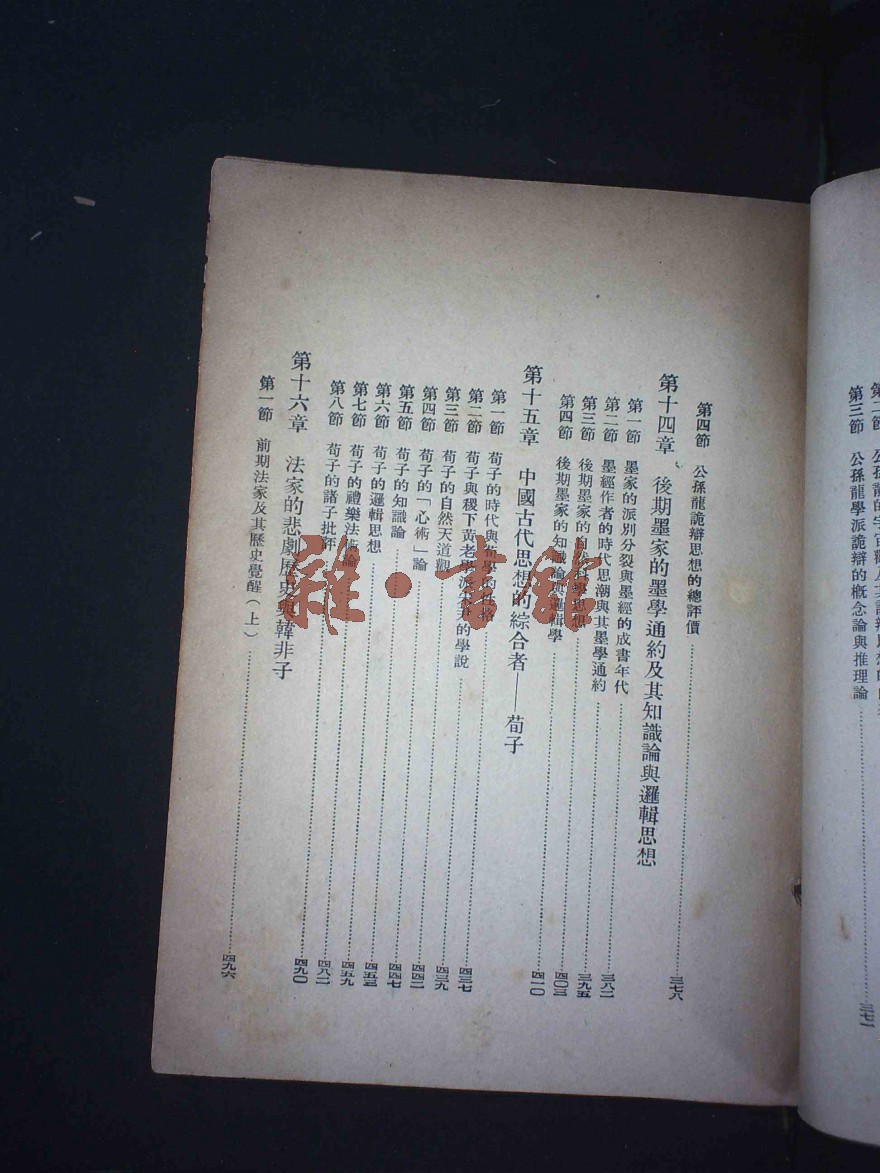 第二節 公孫龍的宇宙觀及其詭辯
第三節 公孫龍學派詭辯的概念論與推理論 三七一
第四節 公孫龍詭辯思想的總評價 三七八
第十四章 後期墨家的墨學通約及其知識論與邏輯思想
第一節 墨家的派別分裂與墨經的成書年代 三八二
第二節 墨經作者的時代思潮與其墨學通約 三九五
第三節 後期墨家的自然科學思想 四〇三
第四節 後期墨家的知識論與邏輯學 四一〇
第十五章 中國古代思想的綜合者——荀子
第一節 荀子的時代與荀學的性格 四三七
第二節 荀子與稷下黃老學派 的學說 四三九
第三節 荀子的自然天道觀 四四二
第四節 荀子的「心術」論 四四七
第五節 荀子的知識論 四五三
第六節 荀子的邏輯思想 四五九
第七節 荀子的禮樂法術論 四八二
第八節 荀子的諸子批評 四九〇
第十六章 法家的悲劇歷史與韓非子
第一節 前期法家及其歷史覺醒(上) 四九六
雜·書館